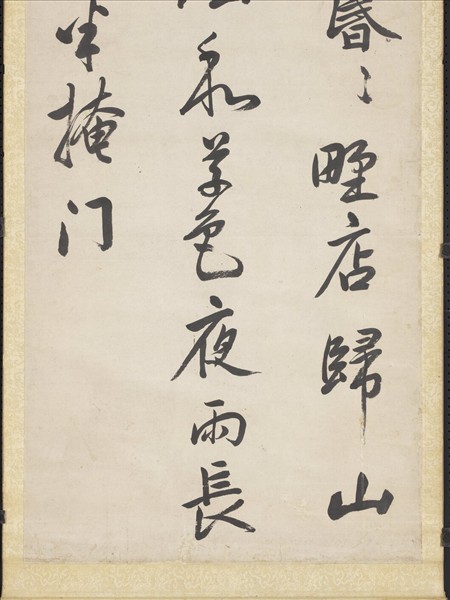 昏〻野店歸山
和草色夜雨長
半掩門